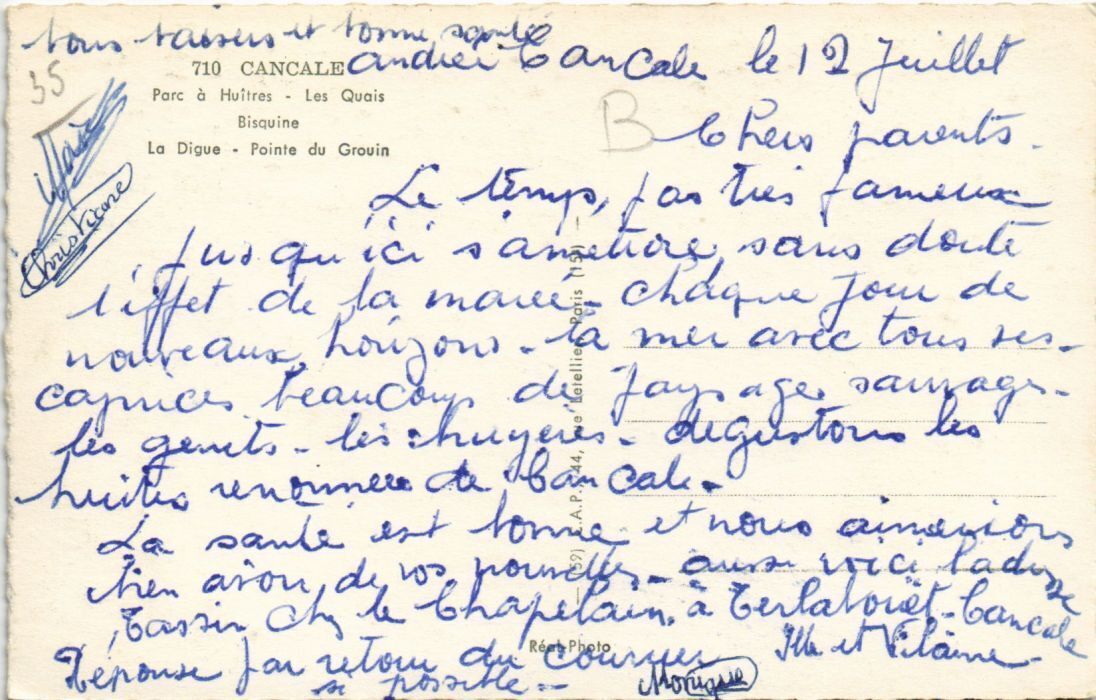 bons baisers et bonne santé
André
35
710 CANCALE
Parc à Huîtres - Les Quais
Bisquine
La Digue - Pointe du Grouin
Christiane
B
Cancale le 12 Juillet
Chers parents.
Le temps, pas très fameux
jusqu'ici s'améliore, sans doute
l'effet de la marée - chaque jour de
nouveaux horizons - la mer avec tous ses
caprices beaucoup de paysages sauvages -
les genets - les bruyères - dégustons les
huitres renommée de Cancale -
La santé est bonne et nous aimerions
bien avoir de vos nouvelles - aussi voici l'adresse
Tassin Chez le Chapelain à Terlabouët - Cancale
Ille et Vilaine -
Réponse par retour du courrier
si possible -
Monique
(59) C.A.P. - 44, rue Letellier, Paris (15e)
Réal-Photo